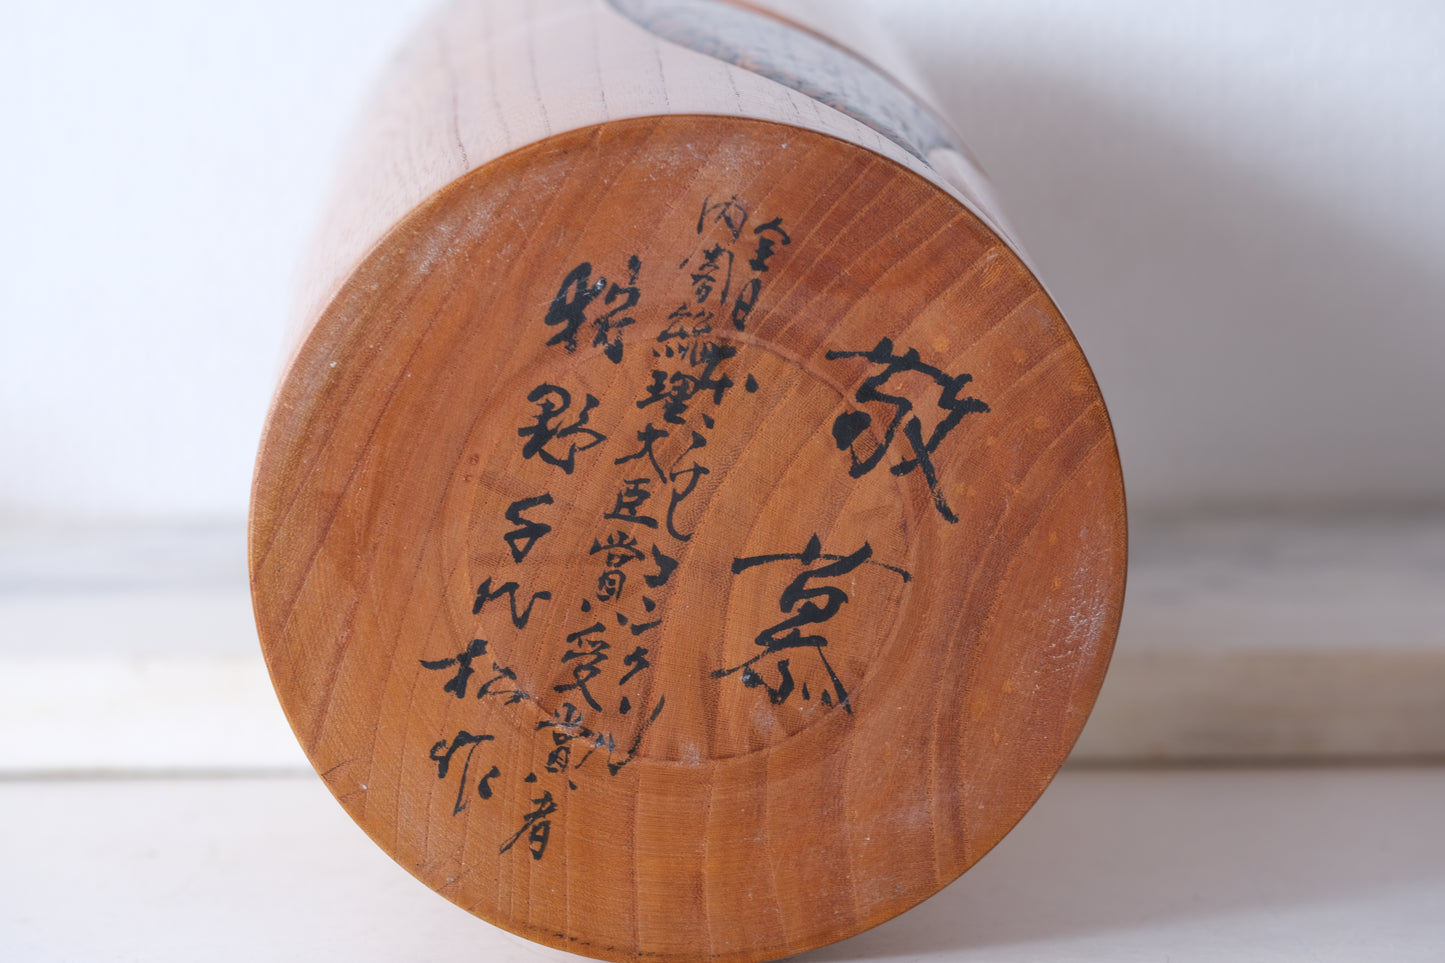 敬慕
全日本こけしコンクール
内閣総理大臣賞受賞者
野千代松作